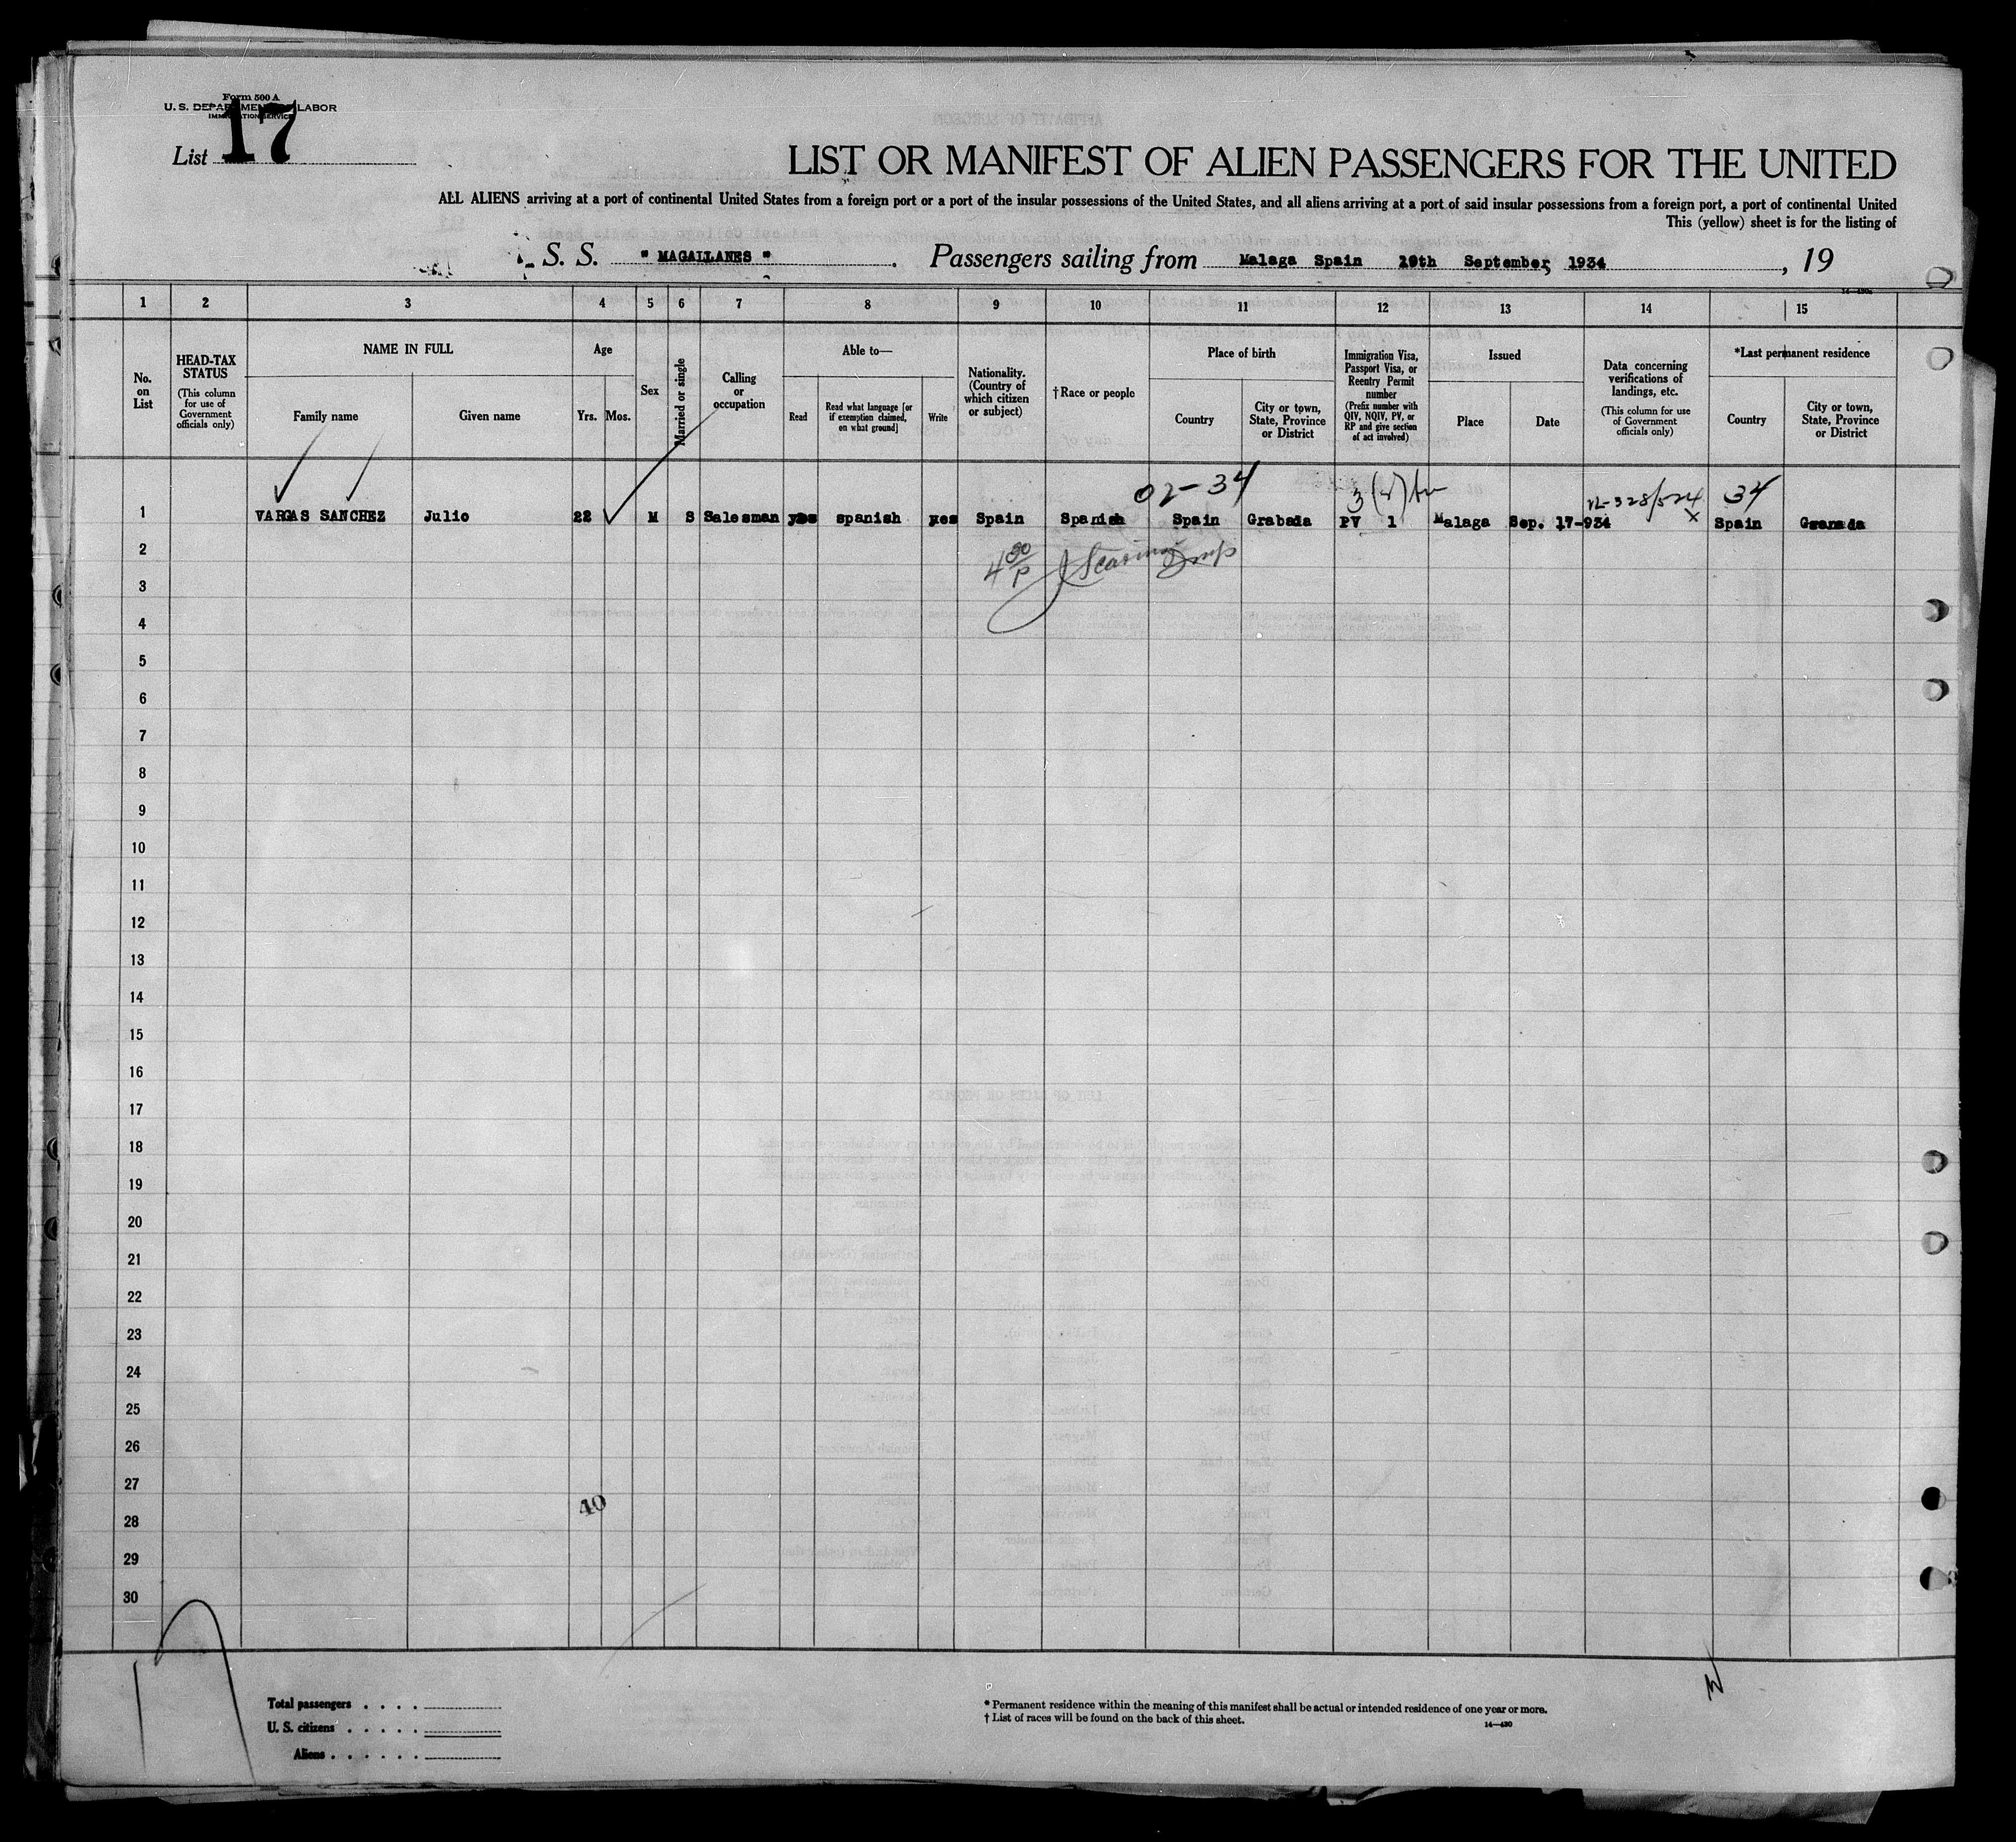 Form 500 A
U. S. DEPARTMENT OF LABOR
IMMIGRATION SERVICE
List 17
LIST OR MANIFEST OF ALIEN PASSENGERS FOR THE UNITED
ALL ALIENS arriving at a port of continental United States from a foreign port or a port of the insular possessions of the United States, and all aliens arriving at a port of said insular possessions from a foreign port, a port of continental United
This (yellow) sheet is for the listing of
S. S. " MAGALLANES " . Passengers sailing from Malaga Spain September, 1934 , 19
1 2 3 4 5 6 7 8 9 10 11 12 13 14 15
No. on List
HEAD-TAX STATUS
(This column for use of Government officials only)
NAME IN FULL
Family name
Given name
Age
Yrs.
Mos.
Sex
Married or single
Calling or occupation
Able to—
Read
Read what language [or if exemption claimed, on what ground]
Write
Nationality. (Country of which citizen or subject)
† Race or people
Place of birth
Country
City or town, State, Province or District
Immigration Visa, Passport Visa, or Reentry Permit number
(Prefix number with QIV, NQIV, PV, or RP and give section of act involved)
Issued
Place
Date
Data concerning verifications of landings, etc.
(This column for use of Government officials only)
*Last permanent residence
Country
City or town, State, Province or District
02-34 34
1 VARGAS SANCHEZ Julio 22 M S Salesman yes spanish yes Spain Spanish Spain Grabada PV 1 Malaga Sep. 17-934 X Spain Granada
2
3
4
5
6
7
8
9
10
11
12
13
14
15
16
17
18
19
20
21
22
23
24
25
26
27
40
28
29
30
17
Total passengers . . . .
U. S. citizens . . . . .
Aliens . . . . . .
* Permanent residence within the meaning of this manifest shall be actual or intended residence of one year or more.
† List of races will be found on the back of this sheet.
14—430